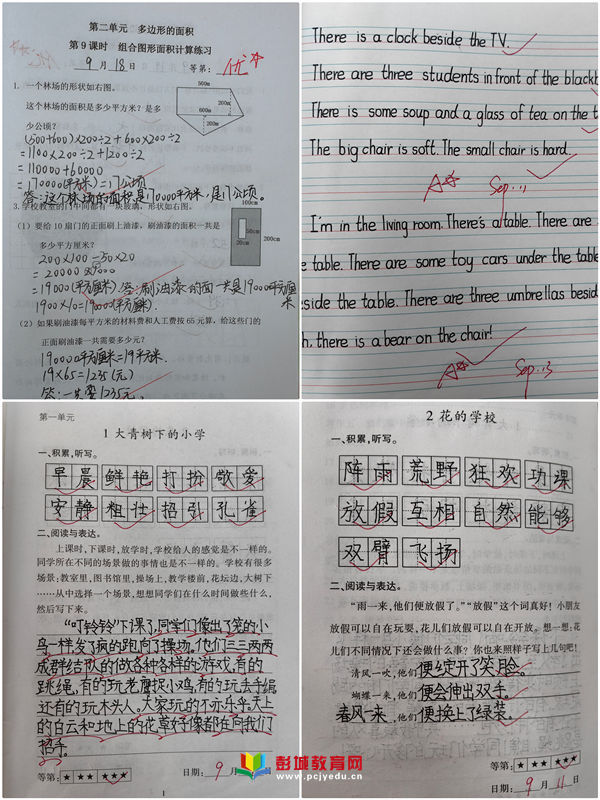 第二单元 多边形的面积
第9课时 组合图形面积计算练习
9月18日 等第:优
1. 一个林场的形状如右图。
500m
这个林场的面积是多少平方米?是多
600m
200m
少公顷?
200m
(500+600)×200÷2+600×200÷2
=1100×200÷2+1200÷2
=110000+6000
=170000(平方米)=17公顷
答:这个林场的面积是170000平方米,是17公顷。
3. 学校教室的门中间都有一块玻璃,形状如右图。
100cm
(1)要给10扇门的正面刷上油漆,刷油漆的面积一共是
50cm
多少平方厘米?
20cm
200cm
200×100-50×20
=19000(平方厘米)答:刷油漆的面一共是19000平方厘米
1900×10=19000(平方厘米)
(2)如果刷油漆每平方米的材料费和人工费按65元算,给这些门的
正面刷油漆一共需要多少元?
190000平方厘米=19平方米
19×65=1235(元)
答:一共要1235元。
There is a clock beside the TV.
There are three students in front of the blackb
There is some soup and a glass of tea on the t
The big chair is soft. The small chair is hard.
A☆ Sep.11
I'm in the living room. There's a table. There are
e table. There are some toy cars under the table
side the table. There are three umbrellas besid
h, there is a bear on the chair!
A☆ Sep.13
第一单元
1 大青树下的小学
一、积累,听写。
早晨 鲜艳 打扮 敬爱
安静 粗壮 招引 孔雀
二、阅读与表达。
上课时,下课时,放学时,学校给人的感觉是不一样的。
同学所在不同的场景做的事情也是不一样的。学校有很多
场景:教室里,图书馆里,操场上,教学楼前,花坛边,大树下
……从中选择一个场景,想想同学们在什么时间做些什么,
然后写下来。
“叮铃铃”下课了,同学们像出了笼的小
鸟一样发了疯的跑向了操场。他们三三两两
成群结队的做各种各样的游戏,有的
跳绳,有的玩老鹰捉小鸡,有的玩去手绢
还有的玩木头人。大家玩的不亦乐乎。天上
的白云和地上的花草好像都在向我们
招手。
等第:★ ★★ ★★★
日期:9月
1
2 花的学校
一、积累,听写。
阵雨 荒野 狂欢 功课
放假 互相 自然 能够
双臂 飞扬
二、阅读与表达。
“雨一来,他们便放假了。”“放假”这个词真好!小朋友
放假可以自在玩耍,花儿们放假可以自在开放。想一想:花
儿们不同情况下还会做什么事?你也来照样子写上几句吧!
清风一吹,他们便绽开了笑脸。
蝴蝶一来,他们便会伸出双手。
春风一来,他们便换上了绿装。
等第:★ ★★ ★★★
日期:9月11日
彭城教育网
www.pcjyedu.cn